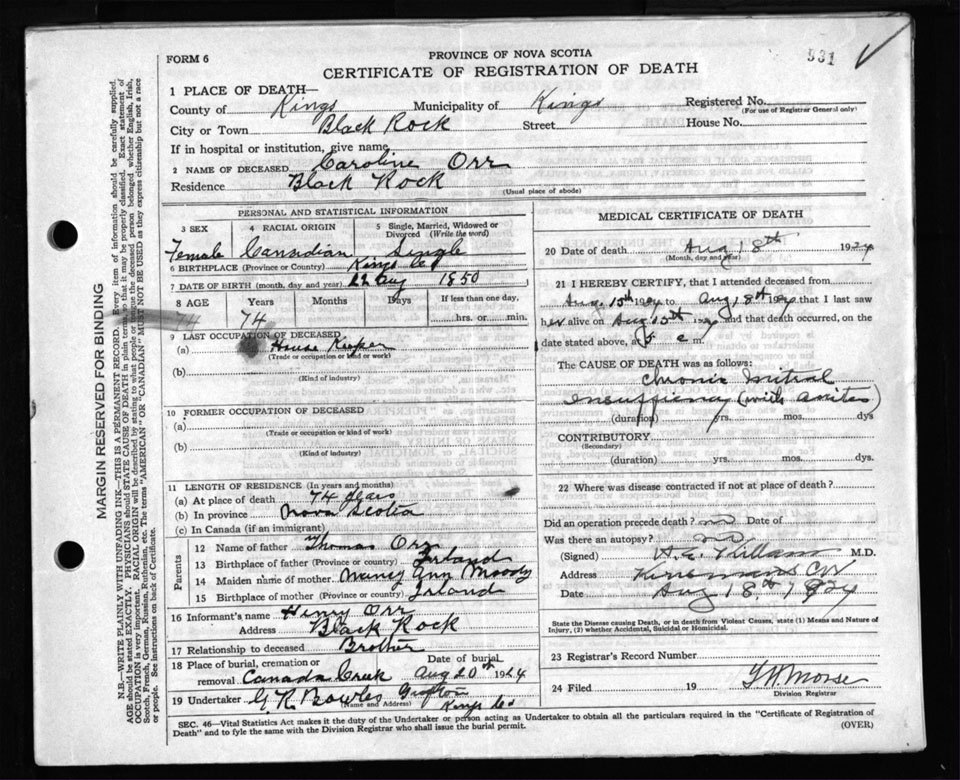 931
FORM 6
PROVINCE OF NOVA SCOTIA
CERTIFICATE OF REGISTRATION OF DEATH
1 PLACE OF DEATH—
County of Kings Municipality of Kings Registered No.
(For use of Registrar General only)
City or Town Black Rock Street House No.
If in hospital or institution, give name
2 NAME OF DECEASED Caroline Orr
Residence Black Rock
(Usual place of abode)
PERSONAL AND STATISTICAL INFORMATION
3 SEX 4 RACIAL ORIGIN 5 Single, Married, Widowed or Divorced (Write the word)
Female Canadian Single
6 BIRTHPLACE (Province or Country) Kings Co
7 DATE OF BIRTH (month, day and year) 22 Aug 1850
8 AGE Years Months Days If less than one day,
74 74 hrs. or min.
9 LAST OCCUPATION OF DECEASED
(a) House Keeper
(Trade or occupation or kind of work)
(b)
(Kind of industry)
10 FORMER OCCUPATION OF DECEASED
(a)
(Trade or occupation or kind of work)
(b)
(Kind of industry)
11 LENGTH OF RESIDENCE (In years and months)
(a) At place of death 74 years
(b) In province Nova Scotia
(c) In Canada (if an immigrant)
Parents
12 Name of father Thomas Orr
13 Birthplace of father (Province or country) Irland
14 Maiden name of mother Nancy Ann Moody
15 Birthplace of mother (Province or country) Irland
16 Informant's name Henry Orr
Address Black Rock
17 Relationship to deceased Brother
18 Place of burial, cremation or removal Canada Creek Date of burial Aug 20th 1924
19 Undertaker G R Bowles Grafton
(Name and Address) Kings Co
MEDICAL CERTIFICATE OF DEATH
20 Date of death Aug 18th 1924
(Month, day and year)
21 I HEREBY CERTIFY, that I attended deceased from
Aug. 15th 1924 to Aug 18th 1924 that I last saw
her alive on Aug 15th 1924 and that death occurred, on
date stated above, at 5 m.
The CAUSE OF DEATH was as follows:
Chronic Mitral
Insufficiency (with
(duration) yrs. mos. dys
CONTRIBUTORY
(Secondary)
(duration) yrs. mos. dys.
22 Where was disease contracted if not at place of death?
Did an operation precede death? no Date of
Was there an autopsy? no
(Signed) M.D.
Address
Date Aug 18th, 1924
State the Disease causing Death, or in death from Violent Causes, state (1) Means and Nature of
Injury, (2) whether Accidental, Suicidal or Homicidal.
23 Registrar's Record Number
24 Filed 19 Morse
Division Registrar
SEC. 46—Vital Statistics Act makes it the duty of the Undertaker or person acting as Undertaker to obtain all the particulars required in the "Certificate of Registration of
Death" and to fyle the same with the Division Registrar who shall issue the burial permit. (OVER)
MARGIN RESERVED FOR BINDING
N.B.—WRITE PLAINLY WITH UNFADING INK—THIS IS A PERMANENT RECORD. Every item of information should be carefully supplied.
AGE should be stated EXACTLY. PHYSICIANS should STATE CAUSE OF DEATH in plain terms, so that it may be properly classified. Exact statement of
OCCUPATION is very important. RACIAL ORIGIN will be described by stating to what people or tongue the deceased person belonged whether English, Irish,
Scotch, French, German, Russian, Ruthenian, etc. The terms "AMERICAN" OR "CANADIAN" MUST NOT BE USED as they express citizenship but not a race
or people. See instructions on back of Certificate.